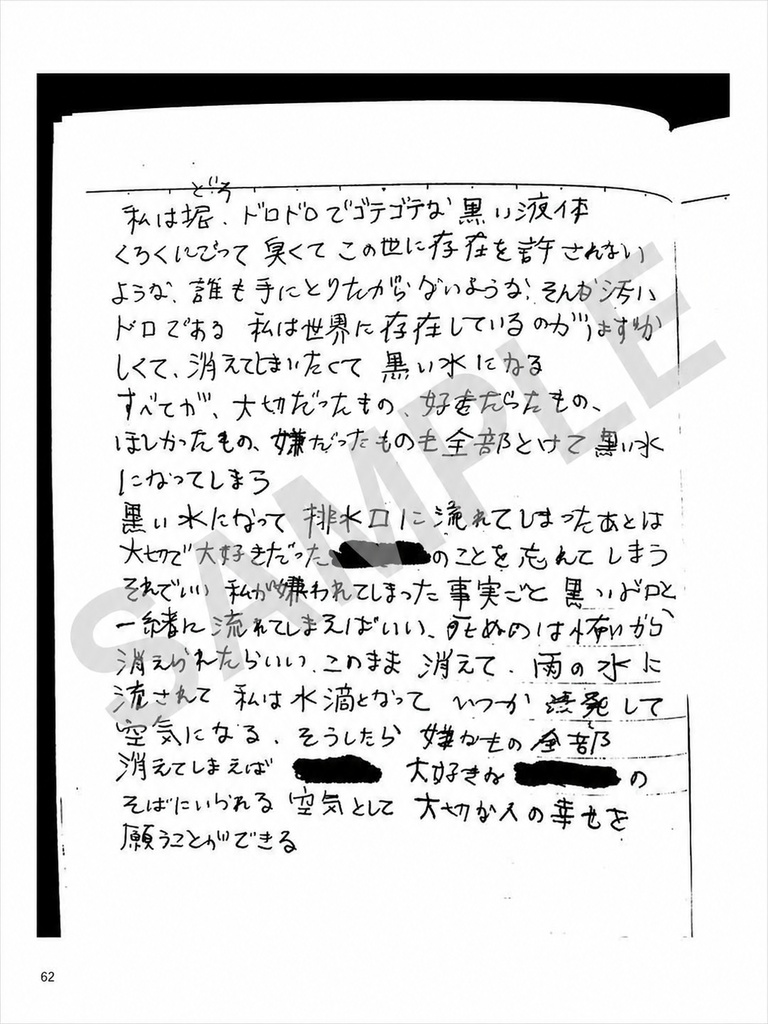 どろ
私は埿、ドロドロでゴテゴテな黒い液体
くろくにごって 臭くて この世に存在を許されない
ような、誰も手にとりたがらないような、そんな汚い
ドロである 私は世界に存在しているのがはずか
しくて、消えてしまいたくて 黒い水になる
すべてが、大切だったもの、好きだったもの、
ほしかったもの、嫌だったものも全部とけて 黒い水
になってしまう
黒い水になって 排水口に流れてしまったあとは
大切で大好きだった のことを忘れてしまう
それでいい 私が嫌われてしまった事実ごと 黒いドロと
一緒に流れてしまえばいい、死ぬのは怖いから
消えられたらいい、このまま 消えて、雨の水に
流されて 私は水滴となって いつか 蒸発して
空気になる、そうしたら 嫌なもの全部
消えてしまえば 大好きな の
そばにいられる 空気として 大切な人の幸せを
願うことができる
SAMPLE
62